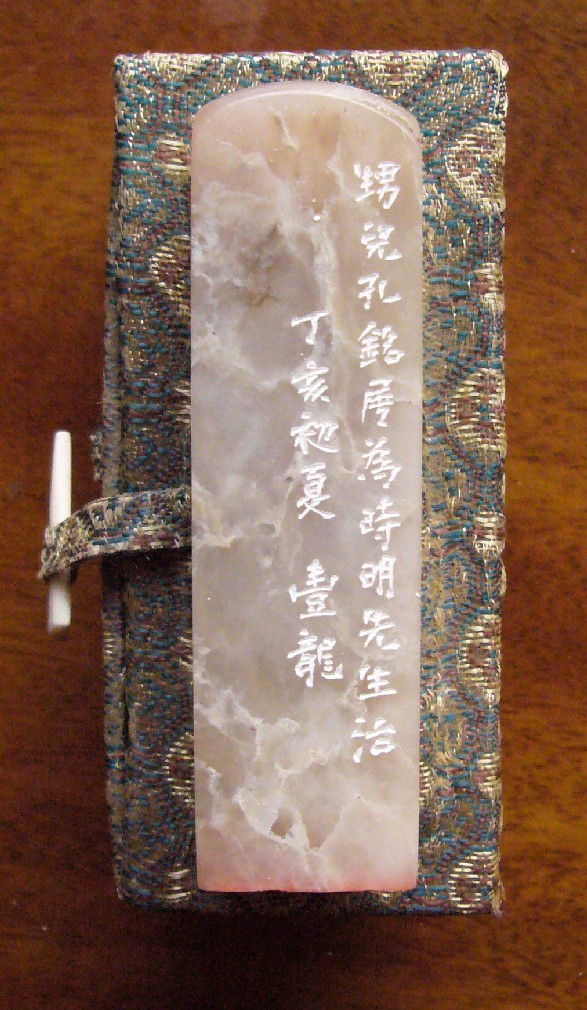 甥兒孔銘屠為時明先生治
丁亥初夏 壹龍